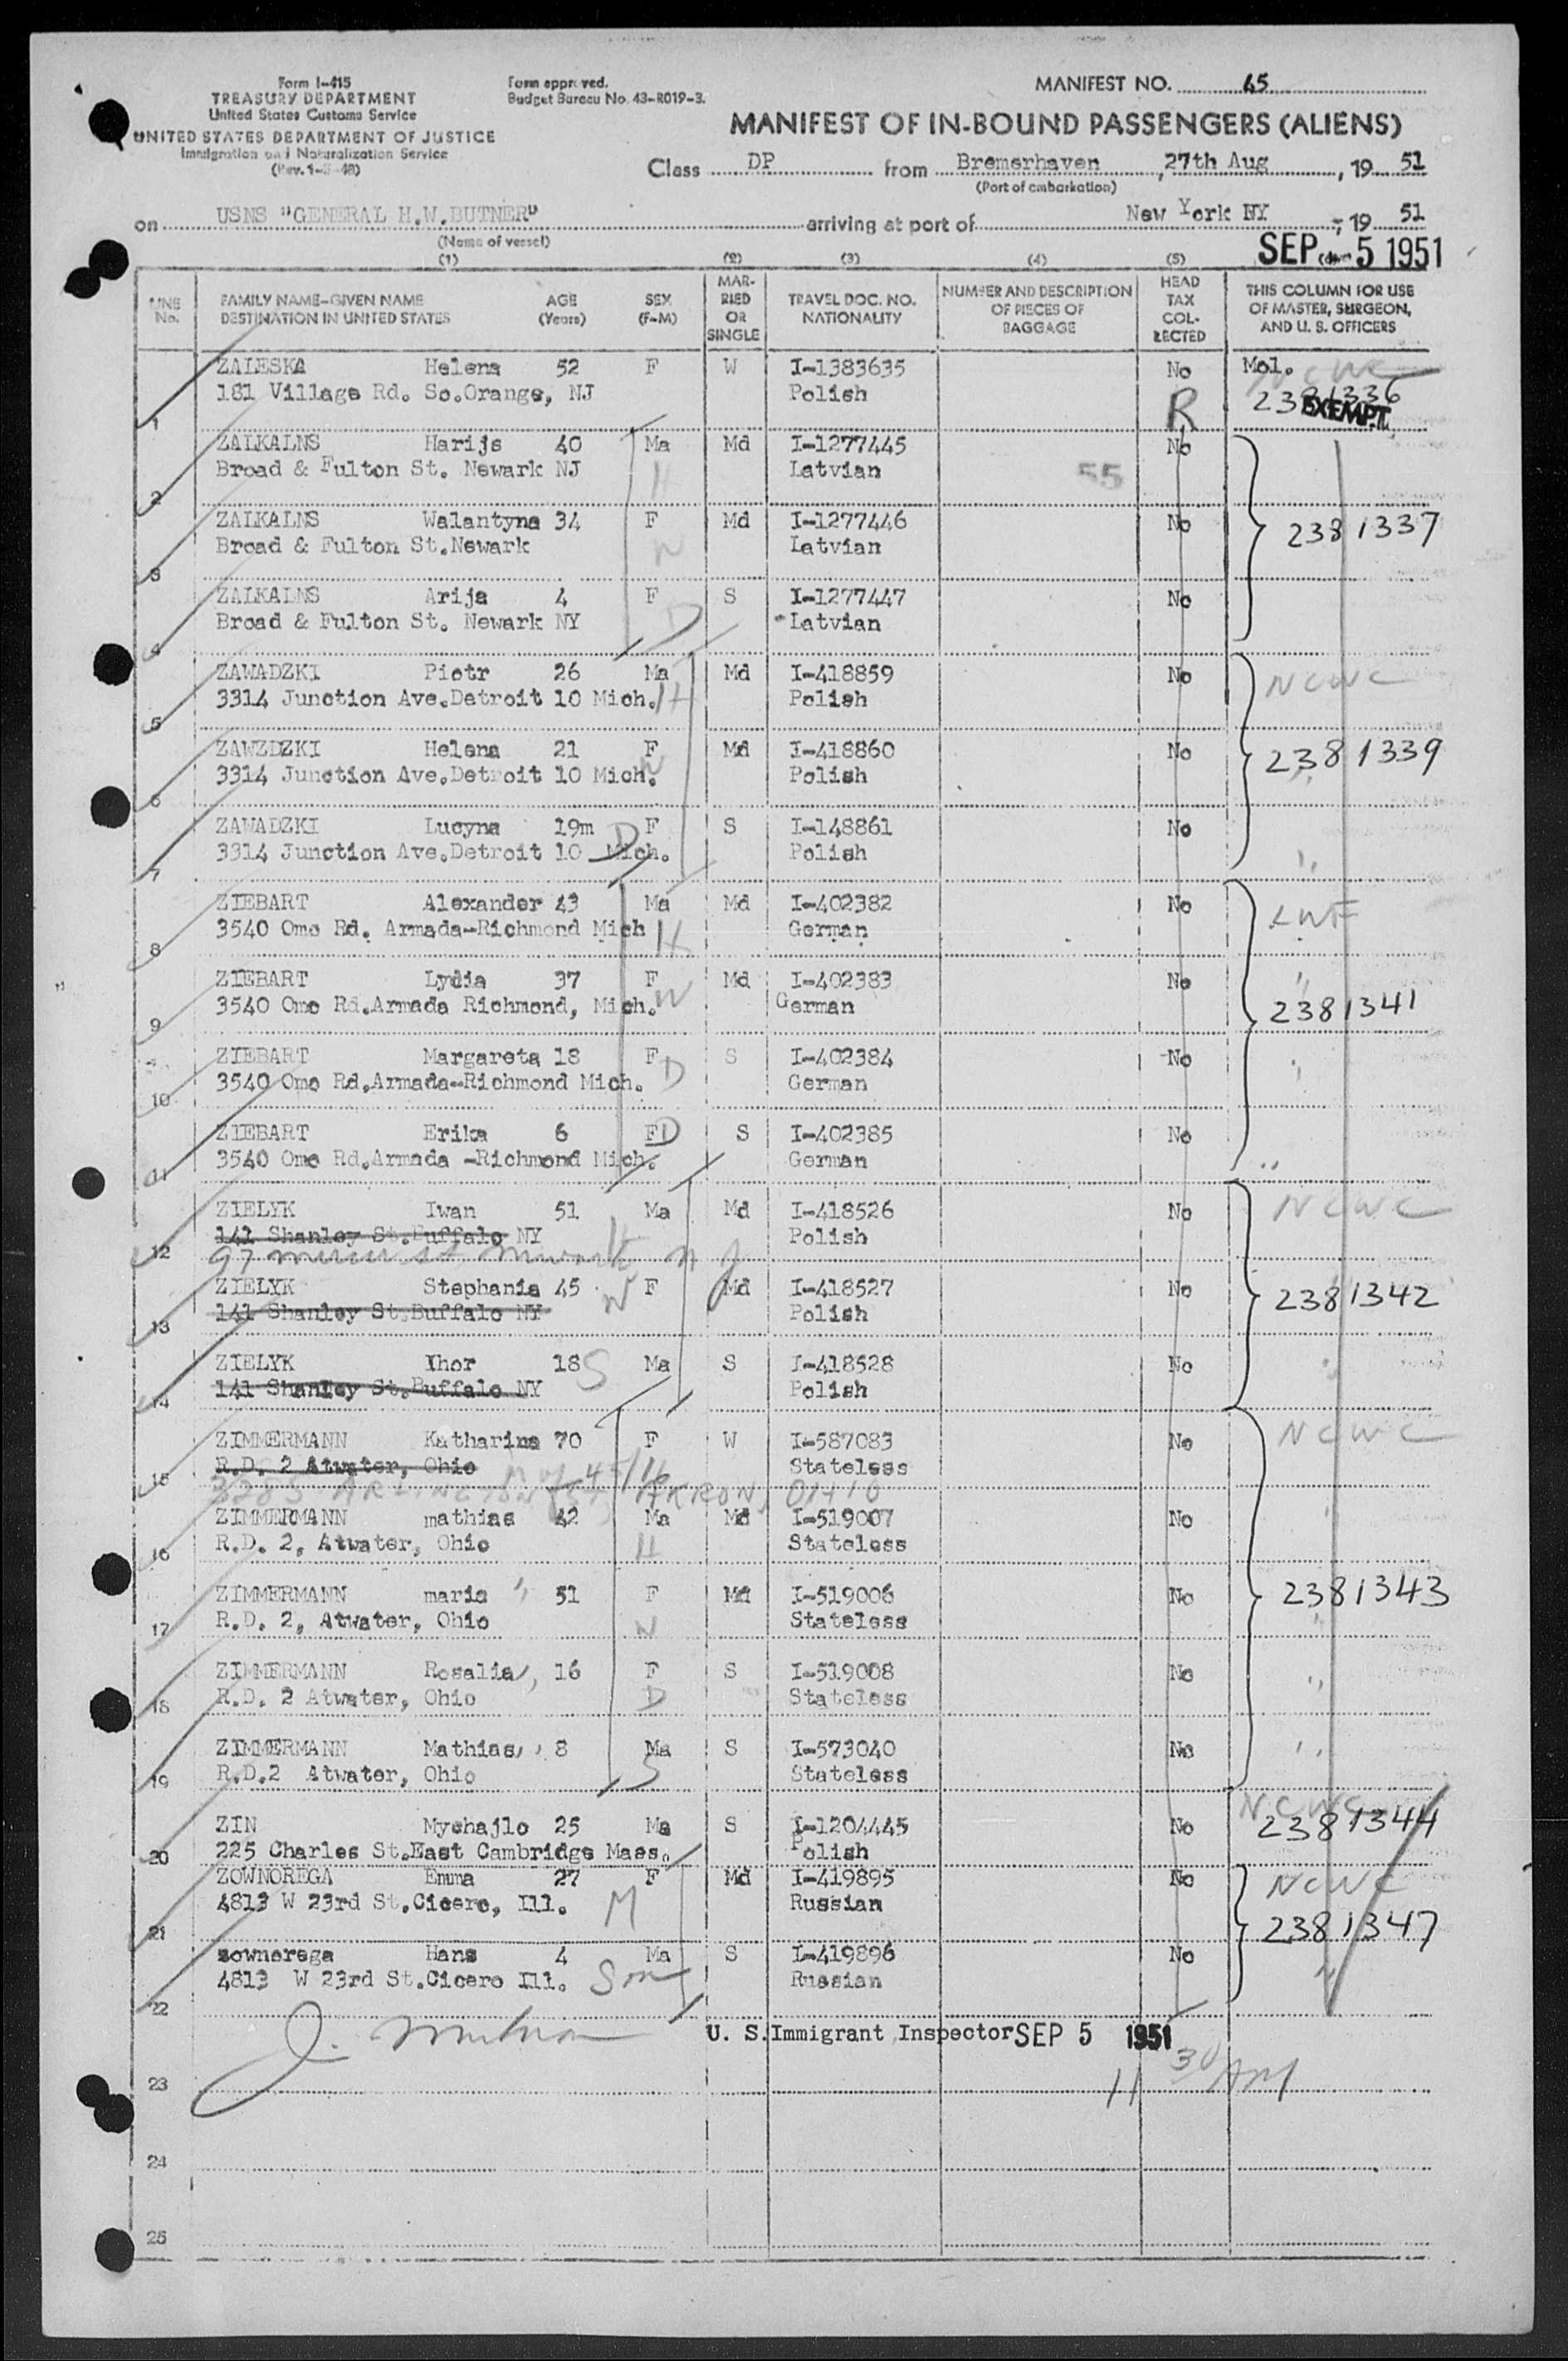 Form I-415
TREASURY DEPARTMENT
United States Customs Service
UNITED STATES DEPARTMENT OF JUSTICE
Immigration and Naturalization Service
Form approved.
Budget Bureau No. 43-R019-3.
MANIFEST NO. 65
MANIFEST OF IN-BOUND PASSENGERS (ALIENS)
Class DP from Bremerhaven, 27th Aug, 19 51
(Port of embarkation)
on USNS "GENERAL H.W.BUTNER" arriving at port of New York NY, 19 51
(Name of vessel)
SEP 5 1951
(1) (2) (3) (4) (5)
LINE No.
FAMILY NAME-GIVEN NAME DESTINATION IN UNITED STATES
AGE (Years)
SEX (F-M)
MARRIED OR SINGLE
TRAVEL DOC. NO. NATIONALITY
NUMBER AND DESCRIPTION OF PIECES OF BAGGAGE
HEAD TAX COLLECTED
THIS COLUMN FOR USE OF MASTER, SURGEON, AND U. S. OFFICERS
ZALESKA Helena 52 F W I-1383635 No Mol. NCWC
1 181 Village Rd. So.Orange, NJ Polish R 2381336 EXEMPT
ZALKALNS Harijs 40 Ma Md I-1277445 No
2 Broad & Fulton St. Newark NJ H Latvian 55
ZALKALNS Walantyna 34 F Md I-1277446 No 2381337
3 Broad & Fulton St.Newark W Latvian
ZALKALNS Arija 4 F S I-1277447 No
4 Broad & Fulton St. Newark NY D Latvian
ZAWADZKI Piotr 26 Ma Md I-418859 No NCWC
5 3314 Junction Ave.Detroit 10 Mich. H Polish
ZAWZDZKI Helena 21 F Md I-418860 No 2381339
6 3314 Junction Ave.Detroit 10 Mich. W Polish "
ZAWADZKI Lucyna 19m F S I-148861 No
7 3314 Junction Ave.Detroit 10 Mich. D Polish "
ZIEBART Alexander 43 Ma Md I-402382 No LWF
8 3540 Omo Rd. Armada-Richmond Mich H German
ZIEBART Lydia 37 F Md I-402383 No "
9 3540 Omo Rd.Armada Richmond, Mich. W German 2381341
ZIEBART Margareta 18 F S I-402384 No "
10 3540 Omo Rd,Armada-Richmond Mich. D German
ZIEBART Erika 6 F D S I-402385 No
11 3540 Omo Rd,Armada -Richmond Mich. German "
ZIELYK Iwan 51 Ma Md I-418526 No NCWC
141 Shanley St.Buffalo NY H Polish
12 97 Mercer st N J
ZIELYK Stephania 45 W F Md I-418527 No 2381342
13 141 Shanley St.Buffalo NY Polish
ZIELYK Ihor 18 S Ma S I-418528 No "
14 141 Shanley St.Buffalo NY Polish
ZIMMERMANN Katharina 70 F W I-587083 No NCWC
15 R.D. 2 Atwater, Ohio Stateless
ARLINGTON ST AKRON, OHIO
ZIMMERMANN mathias 42 Ma Md I-519007 No "
16 R.D. 2, Atwater, Ohio H Stateless
ZIMMERMANN maria " 51 F Md I-519006 No 2381343
17 R.D. 2, Atwater, Ohio W Stateless "
ZIMMERMANN Rosalia " 16 F S I-519008 No "
18 R.D. 2 Atwater, Ohio D Stateless
ZIMMERMANN Mathias " 8 Ma S I-573040 No "
19 R.D.2 Atwater, Ohio S Stateless
ZIN Mychajlo 25 Ma S I-1204445 No NCWC 2381344
20 225 Charles St.East Cambridge Mass. Polish
ZOWNOREGA Emma 27 F Md I-419895 No NCWC
21 4813 W 23rd St.Cicero, Ill. M Russian 2381347
zownorega Hans 4 Ma S I-419896 No
22 4813 W 23rd St.Cicero Ill. Son Russian "
J. U. S. Immigrant Inspector SEP 5 1951
23 11 30 AM
24
25